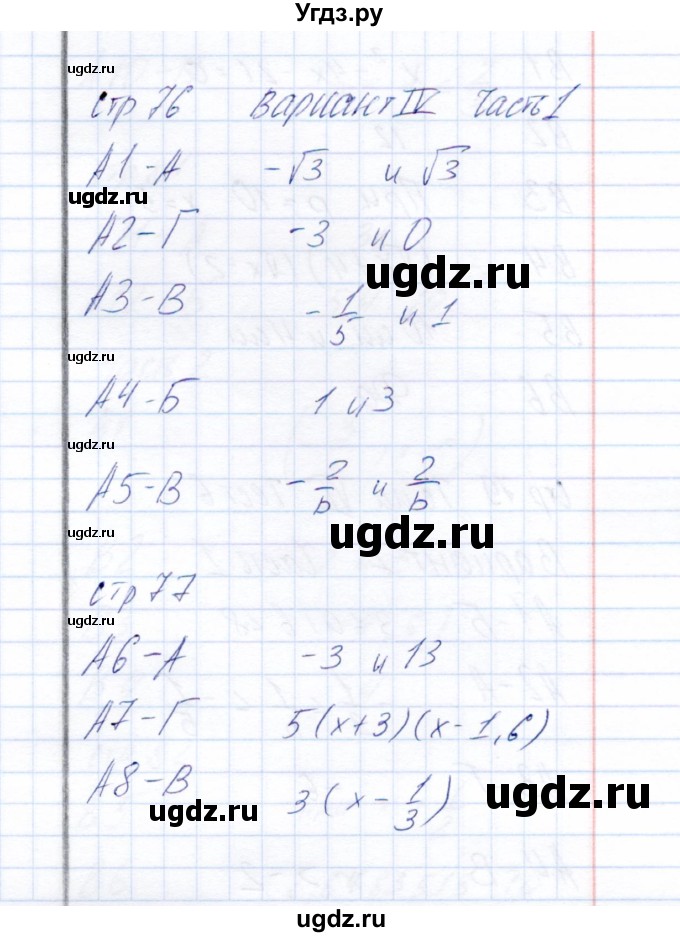 Угдз.ру
ugdz.ru
стр 76 Вариант IV Часть 1
А1-А -√3 и √3
ugdz.ru
А2-Г -3 и 0
ugdz.ru
А3-В -1/5 и 1
ugdz.ru
А4-Б 1 и 3
ugdz.ru
А5-В -2/b и 2/b
ugdz.ru
ugdz.ru
стр 77
ugdz.ru
А6-А -3 и 13
А7-Г 5(x+3)(x-1,6)
ugdz.ru
А8-В 3(x-1/3)
ugdz.ru
ugdz.ru